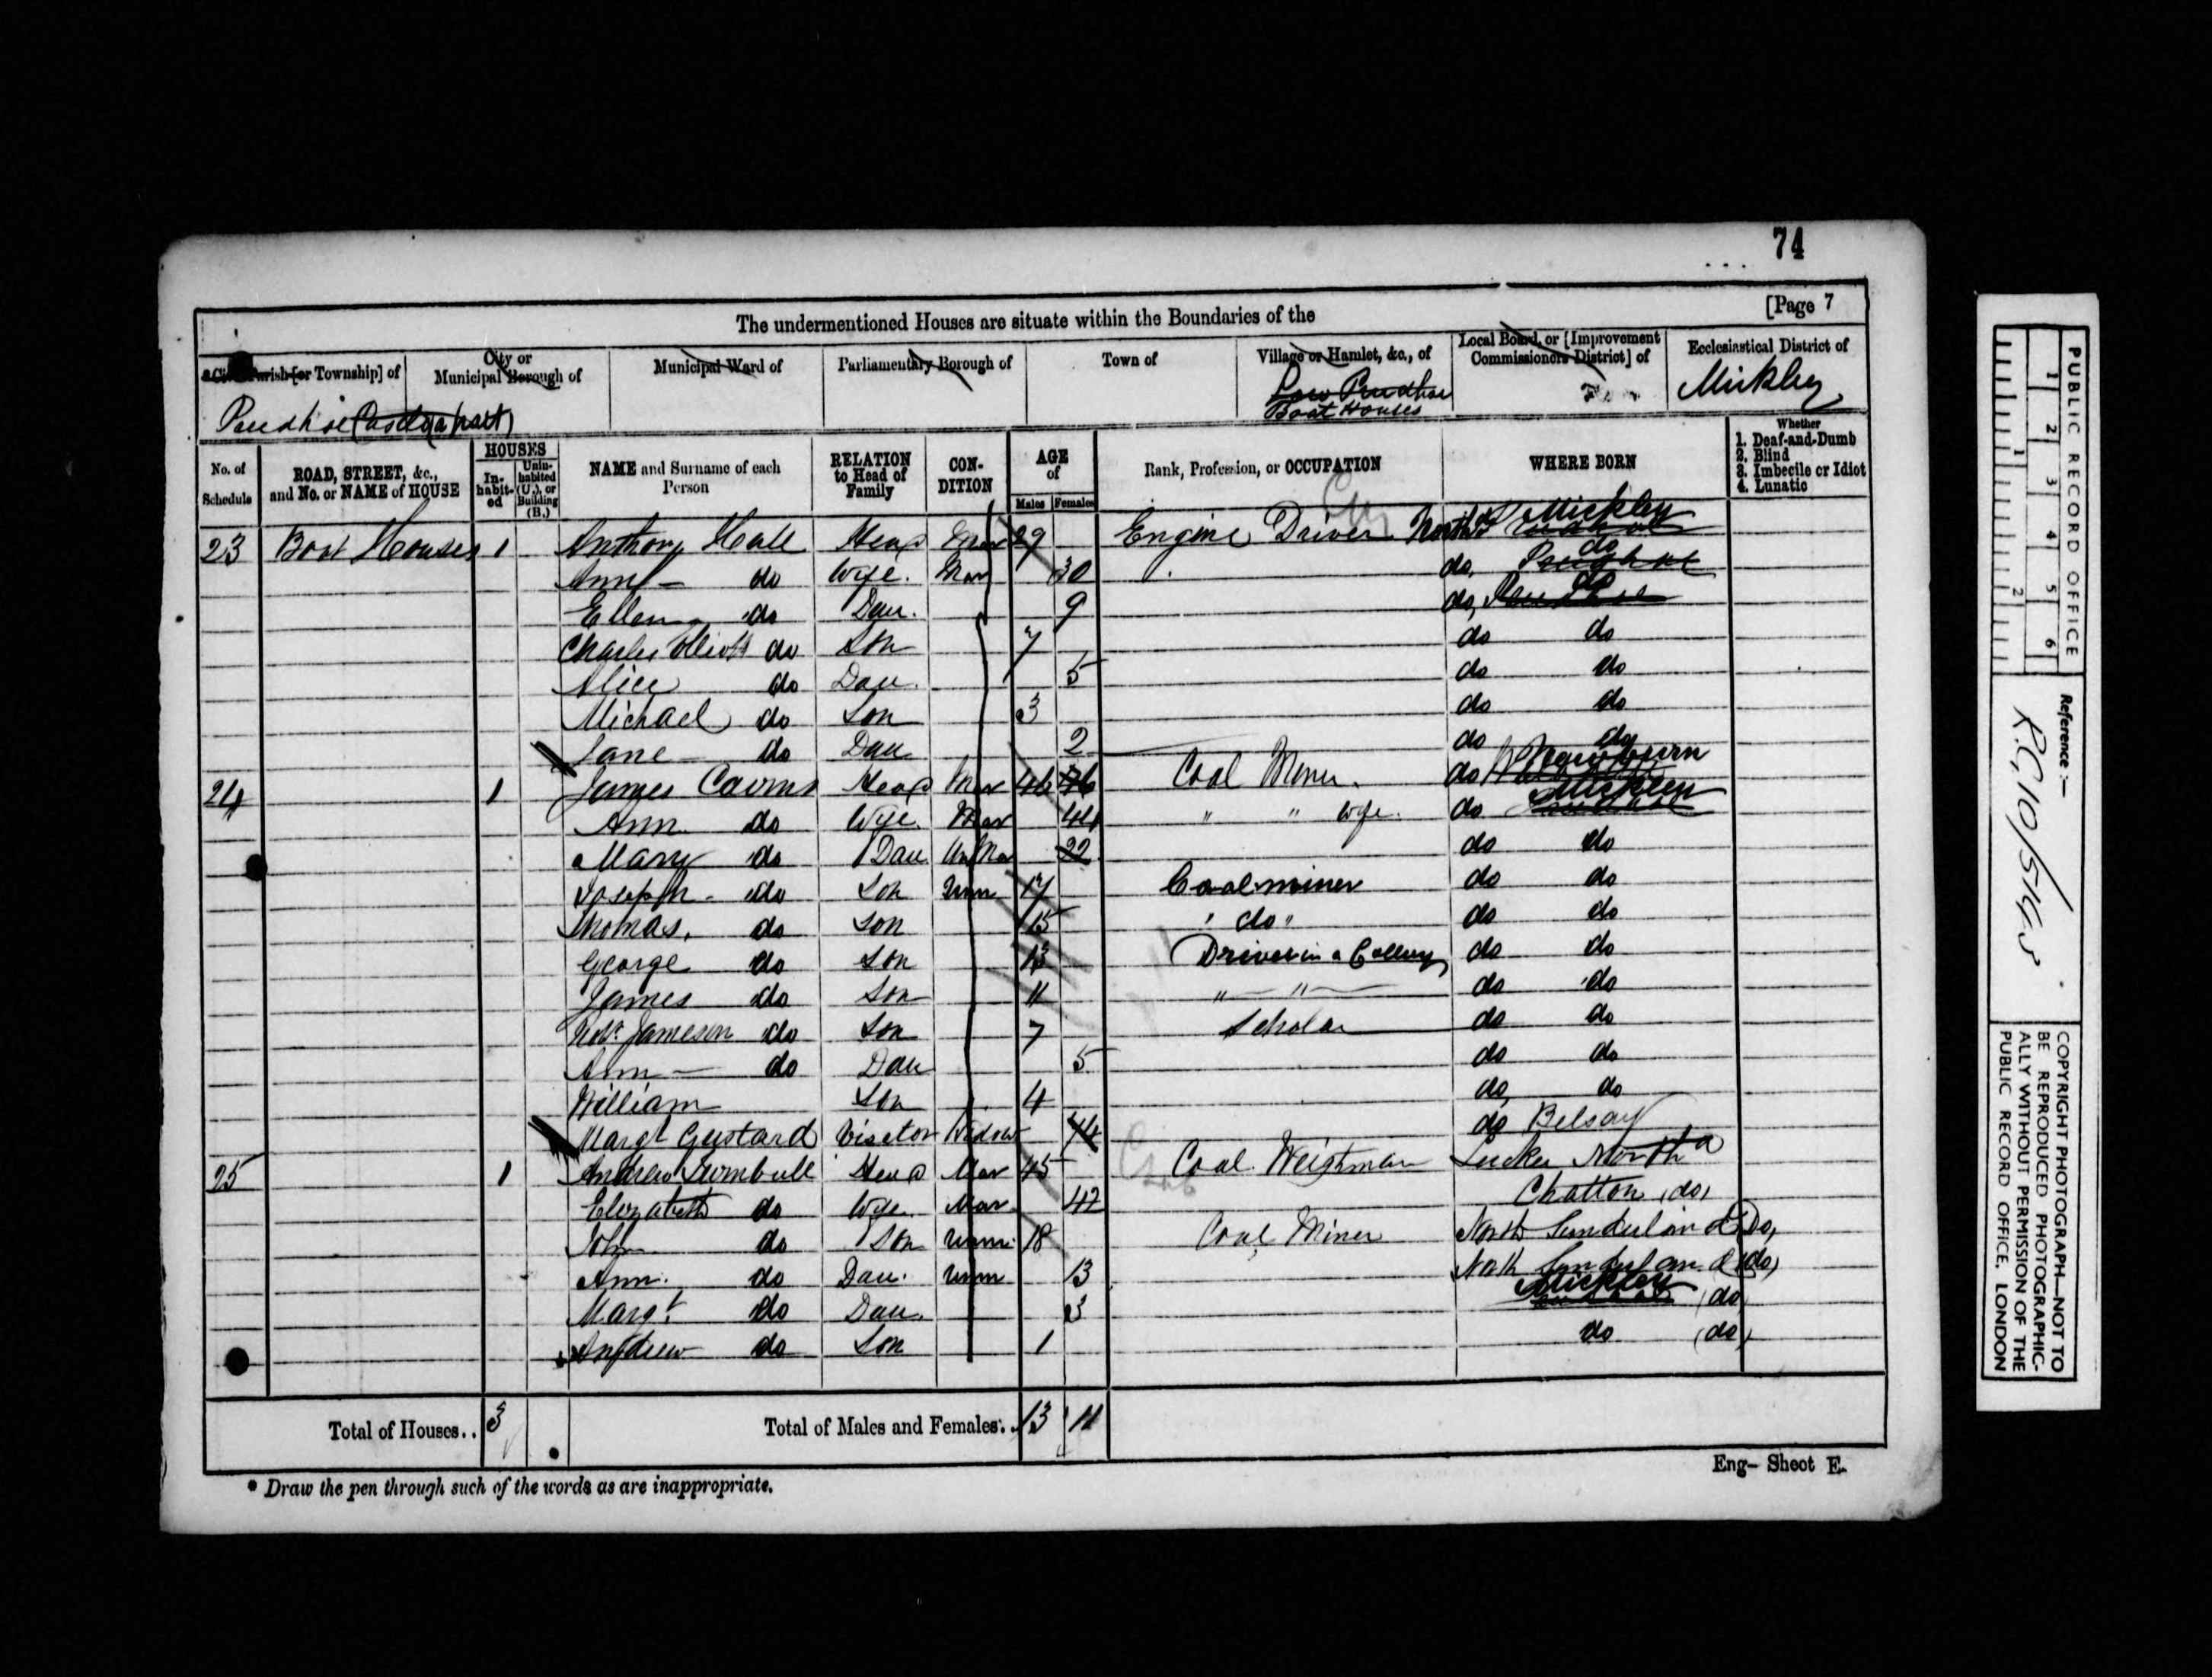 74
[Page 7
The undermentioned Houses are situate within the Boundaries of the
Parish [or Township] of
City or Municipal Borough of
Municipal Ward of
Parliamentary Borough of
Town of
Village or Hamlet, &c., of
Local Board, or [Improvement Commissioners District] of
Ecclesiastical District of
Prudhoe Castle (a part)
Low Prudhoe
Boat Houses
Mickley
No. of Schedule
ROAD, STREET, &c., and No. or NAME of HOUSE
HOUSES
In-habit-ed
Unin-habited (U.), or Building (B.)
NAME and Surname of each Person
RELATION to Head of Family
CON-DITION
AGE of
Males
Females
Rank, Profession, or OCCUPATION
WHERE BORN
Whether
1. Deaf-and-Dumb
2. Blind
3. Imbecile or Idiot
4. Lunatic
23 Boat Houses 1 Anthony Hall Head Mar 29 Engine Driver Mickley
Ann do Wife Mar 30 do, Prudhoe do
Ellen do Dau. 9 do, Prudhoe do
Charles do Son 7 do do
Alice do Dau. 5 do do
Michael do Son 3 do do
Jane do Dau 2 do do
24 1 James Cairns Head Mar 46 46 Coal Miner. do Newburn
Ann do Wife. Mar 44 " " wife. do Mickley Prudhoe
Mary do Dau 22 do do
Joseph do Son Unm 17 Coalminer do do
Thomas. do Son 15 " do " do do
George do Son 13 Driver in a Colliery do do
James do Son 11 " " do do
Robt. Jameson do Son 7 Scholar do do
Ann do Dau 5 do do
William Son 4 do, do
Margt Gustard Visetor Widow 74 do Belsay
25 1 Andrew Turnbull Head Mar 45 Coal Weighman Lucker North
Elizabeth do Wife Mar 42 Chatton (do)
John do Son Unm. 18 Coal Miner North Sunderland Do,
Ann. do Dau. Unm 13 North Sunderland (do)
Margt. do Dau. 3 Mickley Prudhoe (do)
Andrew do Son 1 do (do)
Total of Houses.. 3
Total of Males and Females.. 13 11
Eng- Sheet E.
* Draw the pen through such of the words as are inappropriate.
PUBLIC RECORD OFFICE
1 2 3 4 5 6
1 2
Reference :-
COPYRIGHT PHOTOGRAPH—NOT TO BE REPRODUCED PHOTOGRAPHIC-ALLY WITHOUT PERMISSION OF THE PUBLIC RECORD OFFICE, LONDON